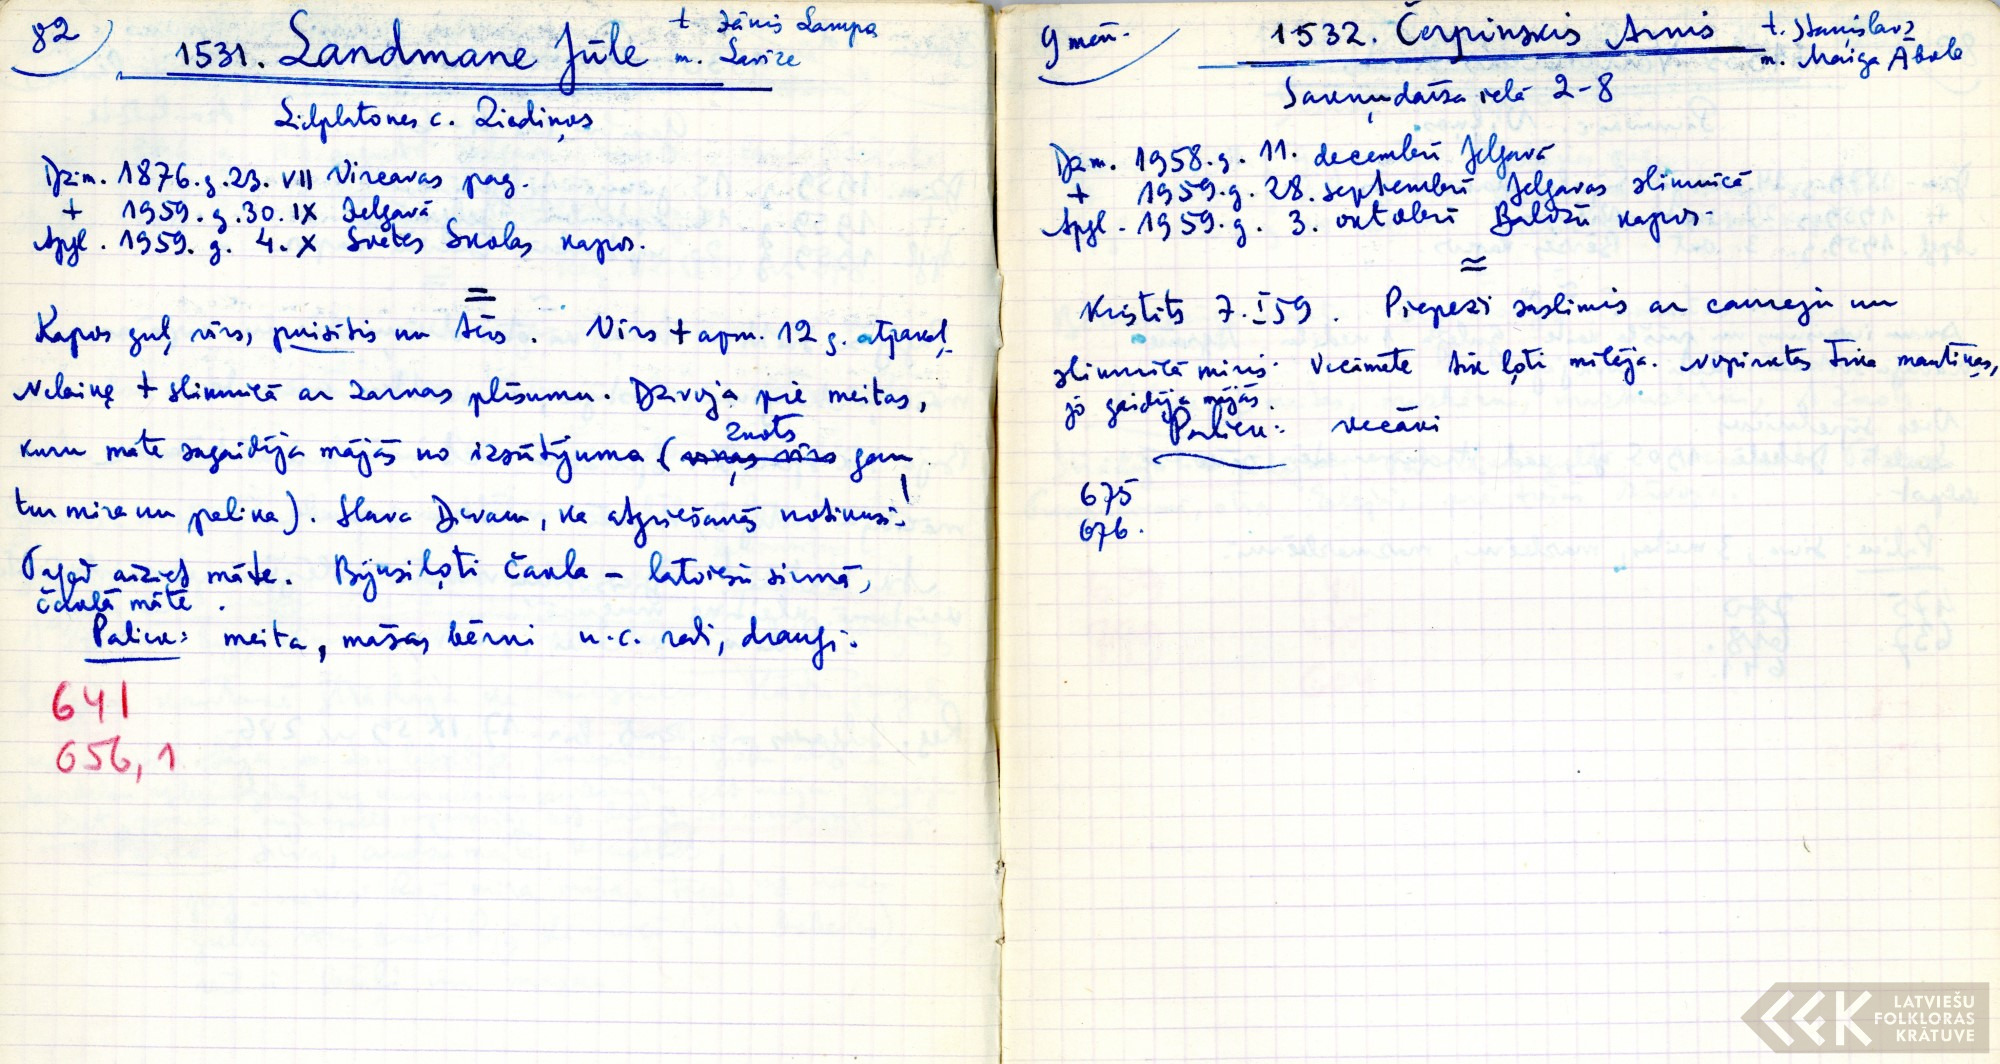 82
1531. Landmane Jūle
t Jānis Lampa
m. Lavīze
Lielplatones c. Ziediņos
Dzim. 1876. g. 23. VII Vircavas pag.
+ 1959. g. 30. IX Jelgavā
Apgl. 1959. g. 4. X Svētes Skolas kapos.
=
Kapos guļ vīrs, puisītis un tēvs. Vīrs + apm. 12 g. atpakaļ.
Nelaiķe + slimnīcā ar zarnas plīsumu. Dzīvoja pie meitas,
znots
kuru māte sagaidīja mājās no izsūtījuma (viņas vīrs gan
tur mira un palika). Slava Dievam, ka atgriešanās notikusi!
Tagad aiziet māte. Bijusi ļoti čakla – latviešu sirmā,
čaklā māte.
Paliek: meita, māsas bērni u.c. radi, draugi.
641
656, 1
9 mēn.
1532. Čerpinskis Arnis
t. Staņislavs
m. Maiga Ābele
Sarkandaiļa ielā 2-8
Dzim. 1958. g. 11. decembrī Jelgavā
+ 1959. g. 28. septembrī Jelgavas slimnīcā
Apgl. 1959. g. 3. oktobrī Baložu kapos.
=
Kristīts 7. I 59. Piepeži saslimis ar caureju un
slimnīcā miris. Vecāmāte tik ļoti mīlēja. Nopirktas tika mantiņas,
jo gaidīja mājās.
Paliek: vecāki
675
676.
LATVIEŠU
FOLKLORAS
KRĀTUVE